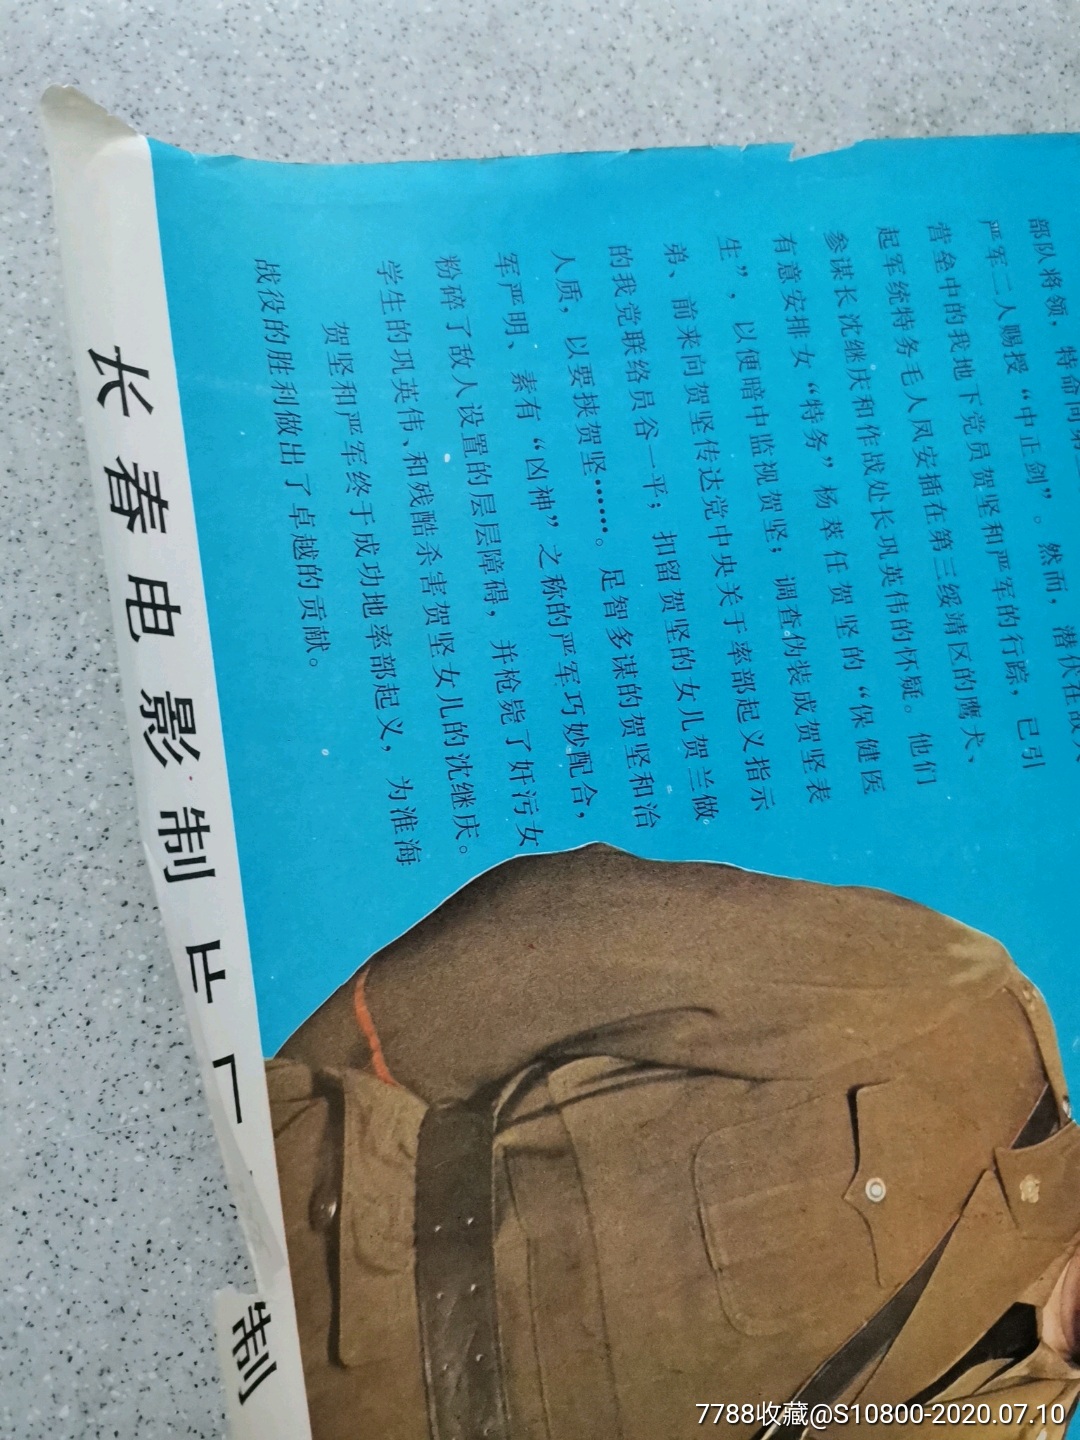 部队将领，特命向第
严军二人赐授“中正剑”。然而，潜伏在敌人
营垒中的我地下党员贺坚和严军的行踪，已引
起军统特务毛人凤安插在第三绥清区的鹰犬、
参谋长沈继庆和作战处长巩英伟的怀疑。他们
有意安排女“特务”杨萃任贺坚的“保健医
生”，以便暗中监视贺坚；调查伪装成贺坚表
弟、前来向贺坚传达党中央关于率部起义指示
的我党联络员谷一平；扣留贺坚的女儿贺兰做
人质，以要挟贺坚……。足智多谋的贺坚和治
军严明、素有“凶神”之称的严军巧妙配合，
粉碎了敌人设置的层层障碍，并枪毙了奸污女
学生的巩英伟、和残酷杀害贺坚女儿的沈继庆。
贺坚和严军终于成功地率部起义，为淮海
战役的胜利做出了卓越的贡献。
长春电影制片厂
制
7788收藏@S10800-2020.07.10